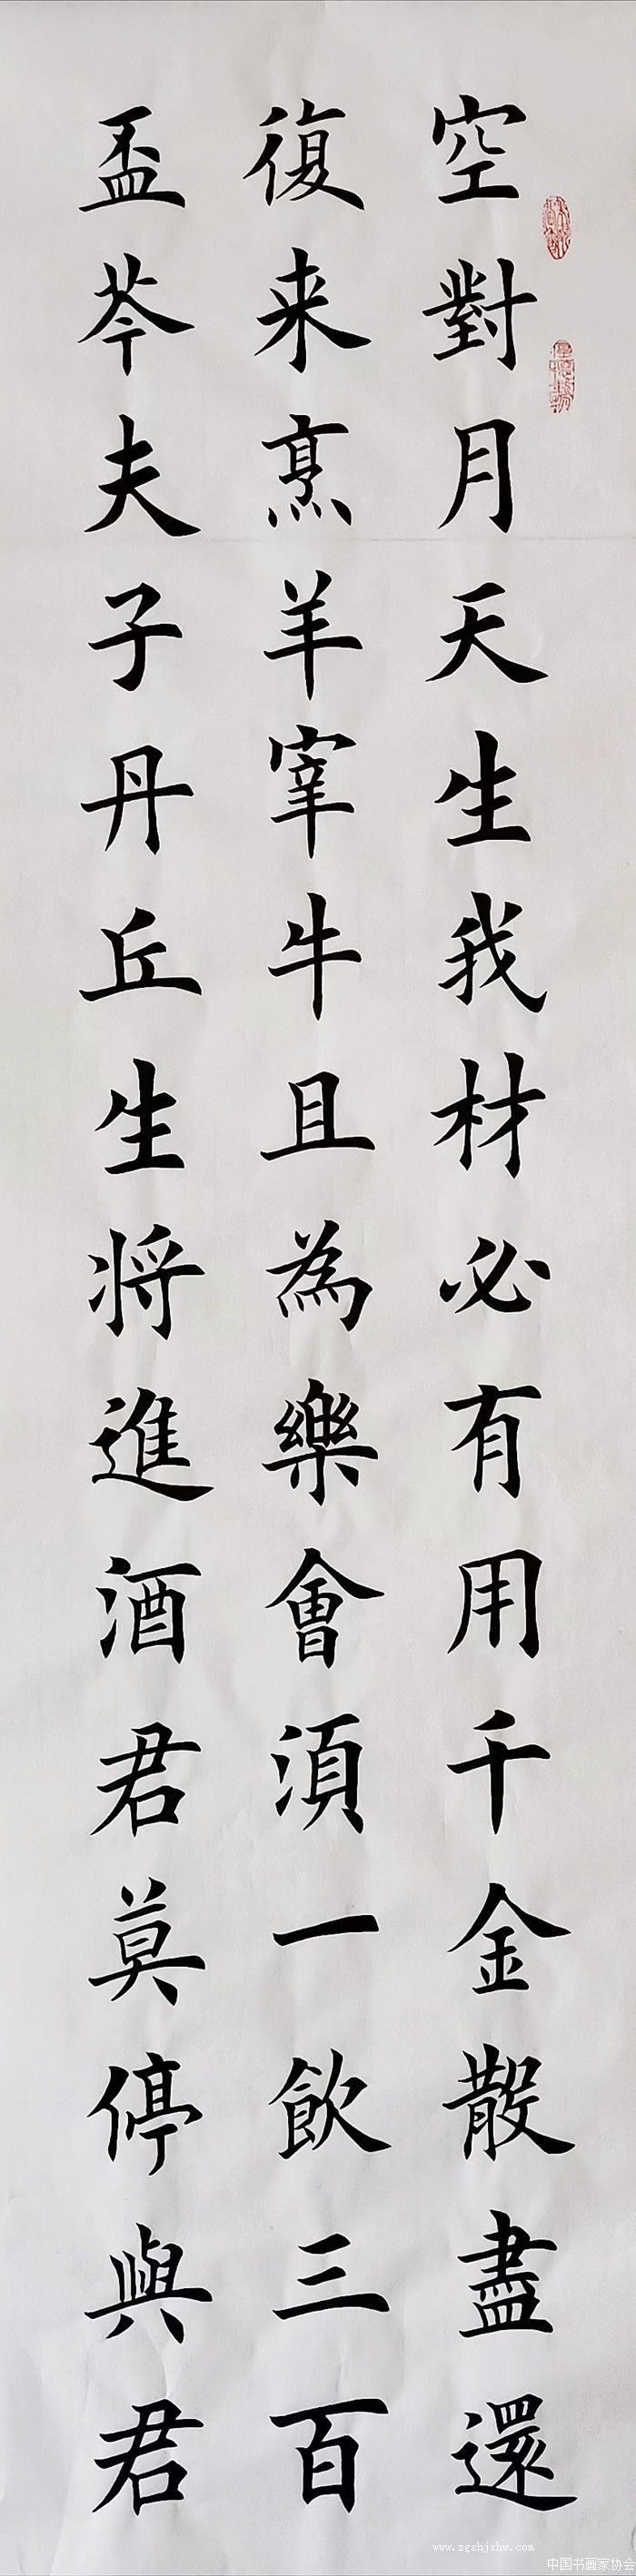 空對月天生我材必有用千金散盡還
復来烹羊宰牛且為樂會須一飲三百
盃芩夫子丹丘生将進酒君莫停與君
www.zgshjxhw.com
中国书画家协会